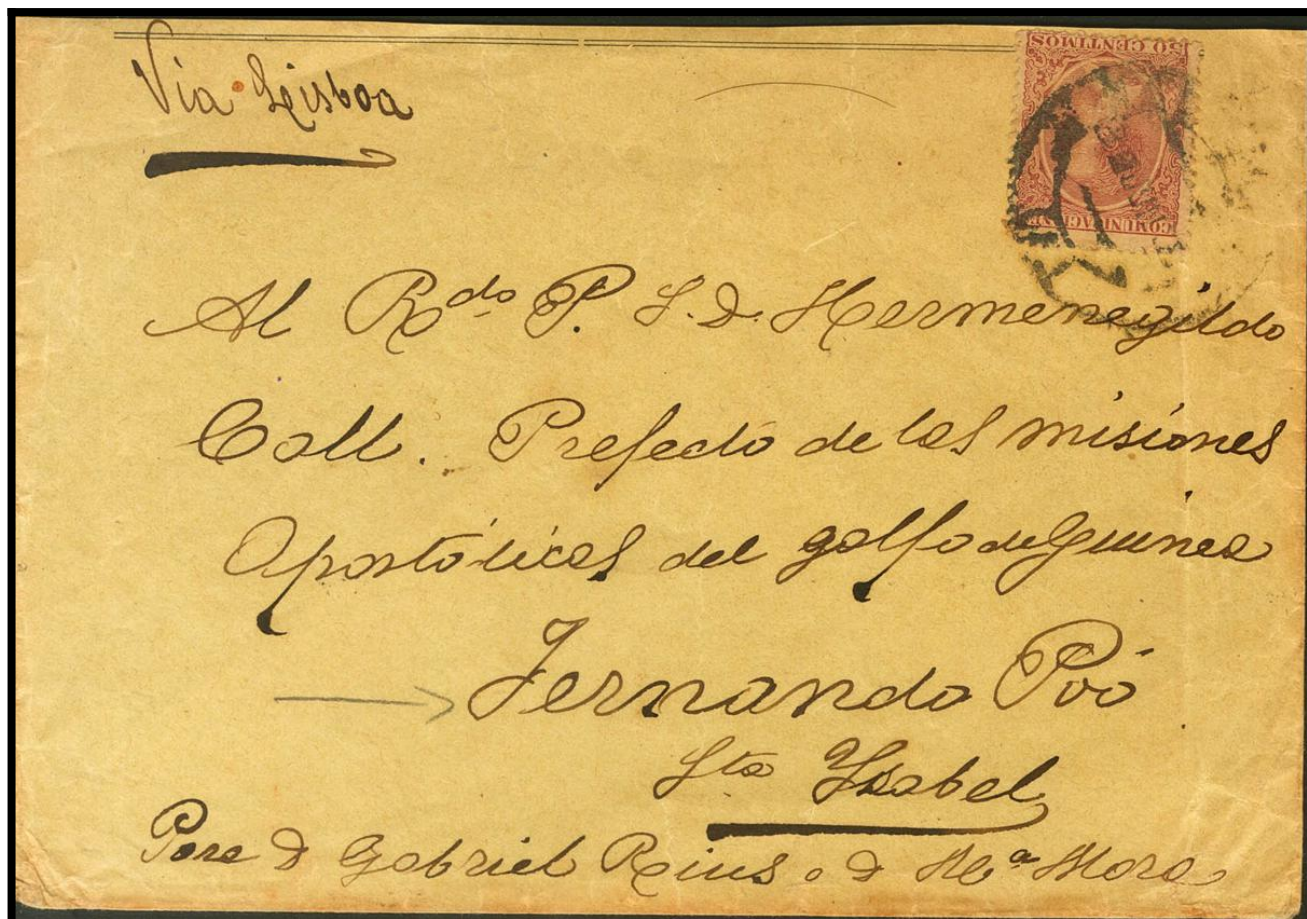 Via Lisboa
50 CENTIMOS
COMUNICACIONES
Al Rdo P. S. D. Hermenegildo
Coll. Prefecto de las misiones
Apostólicas del golfo de Guinea
Fernando Póo
Sta Ysabel
Para D Gabriel Reius o D Ma Mora